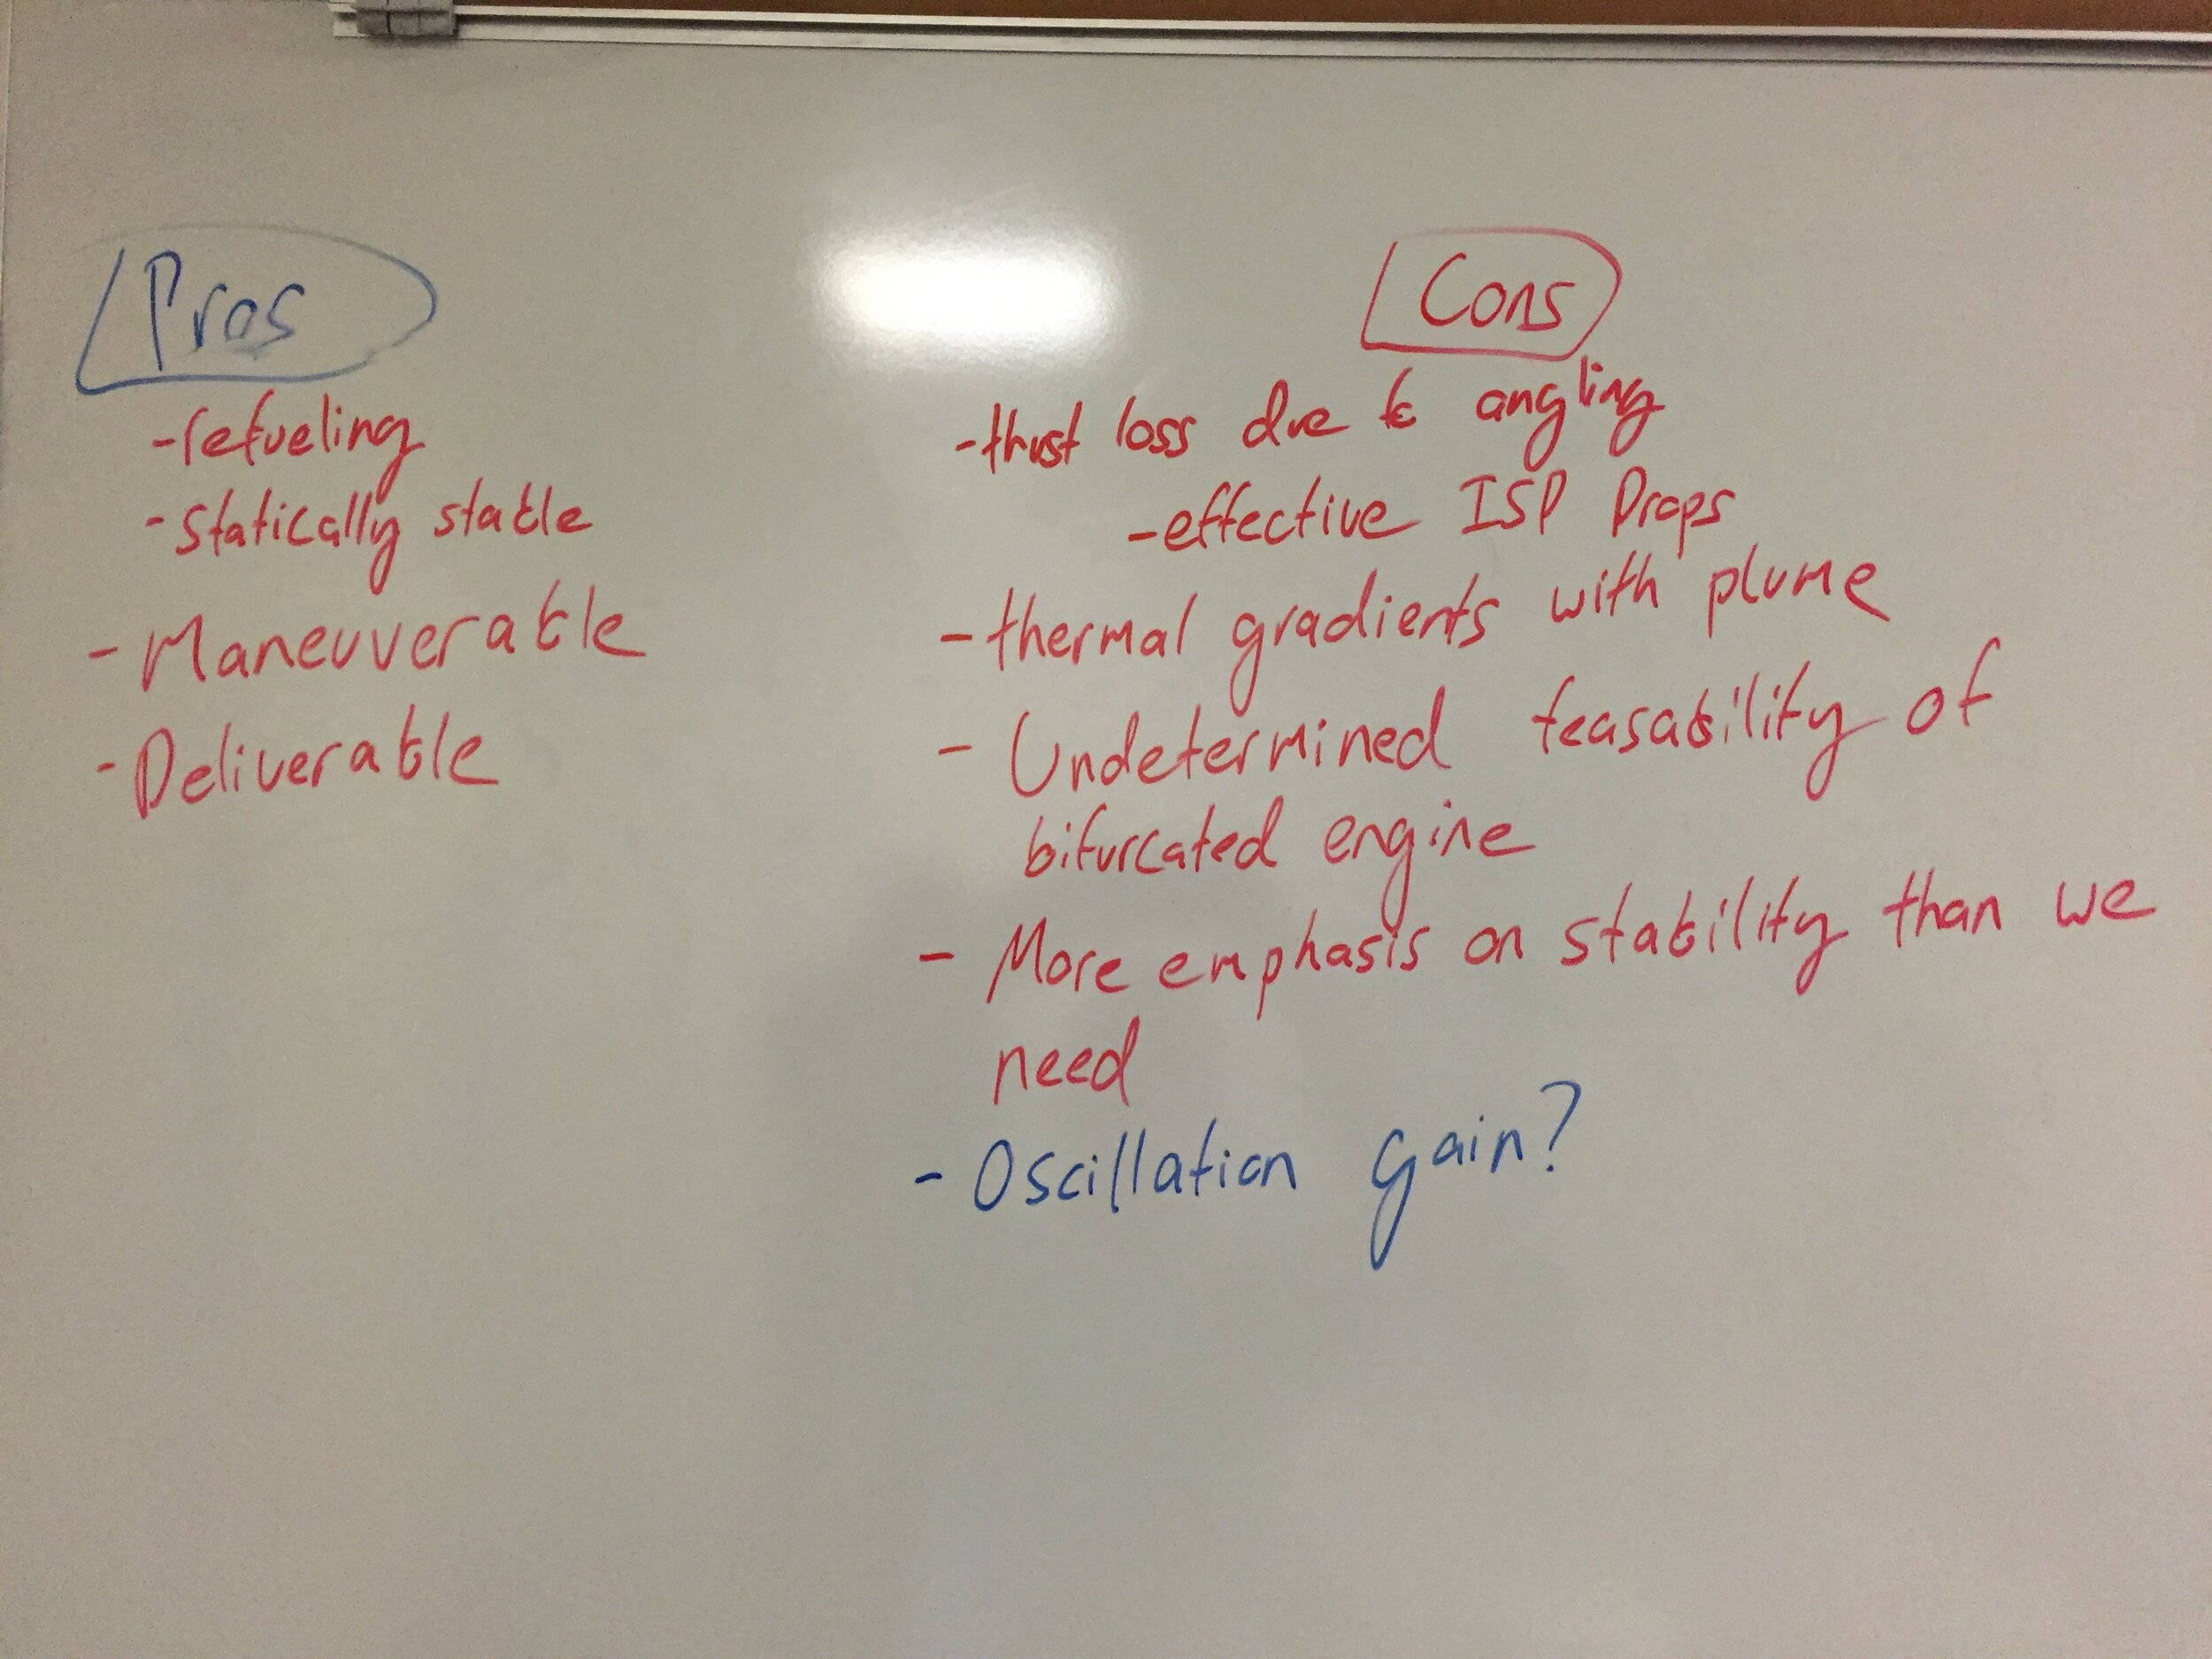 Pros
- refueling
- Statically stable
- Maneuverable
- Deliverable
Cons
- thrust loss due to angling
- effective ISP Drops
- thermal gradients with plume
- Undetermined feasability of
bifurcated engine
- More emphasis on stability than we
need
- Oscillation gain?